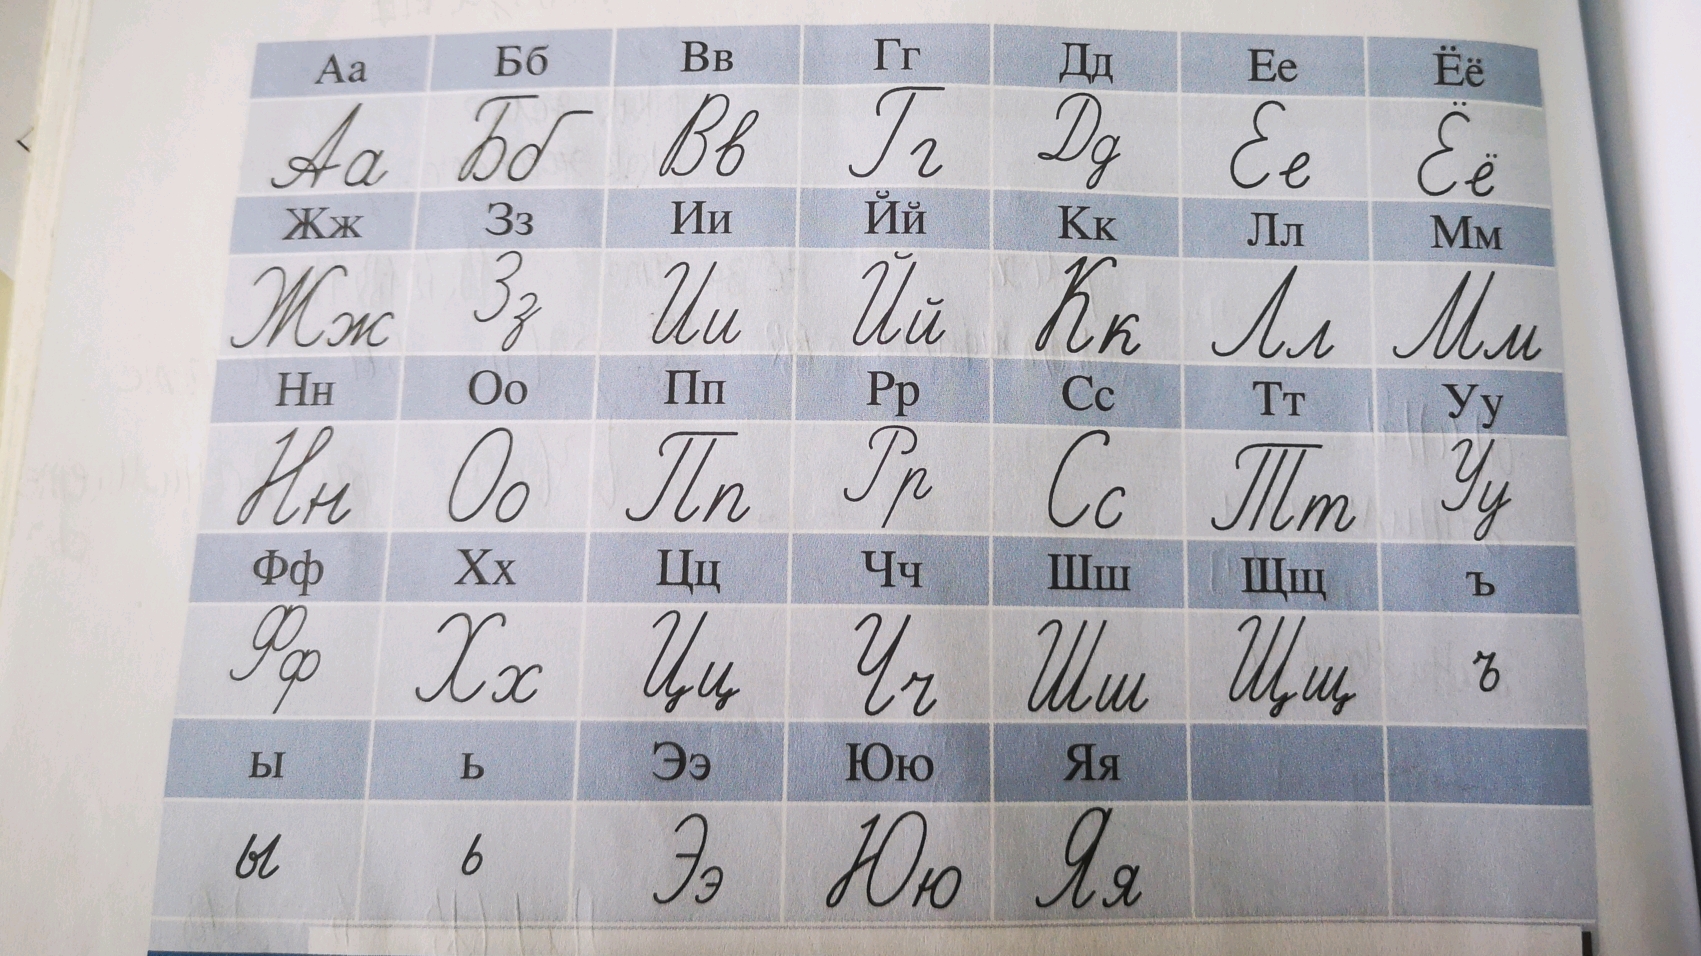 Аа Бб Вв Гг Дд Ее Ёё
Аа Бб Вв Гг Дд Ее Ёё
Жж Зз Ии Йй Кк Лл Мм
Жж Зз Ии Йй Кк Лл Мм
Нн Оо Пп Рр Сс Тт Уу
Нн Оо Пп Рр Сс Тт Уу
Фф Хх Цц Чч Шш Щщ ъ
Фф Хх Цц Чч Шш Щщ ъ
ы ь Ээ Юю Яя
ы ь Ээ Юю Яя